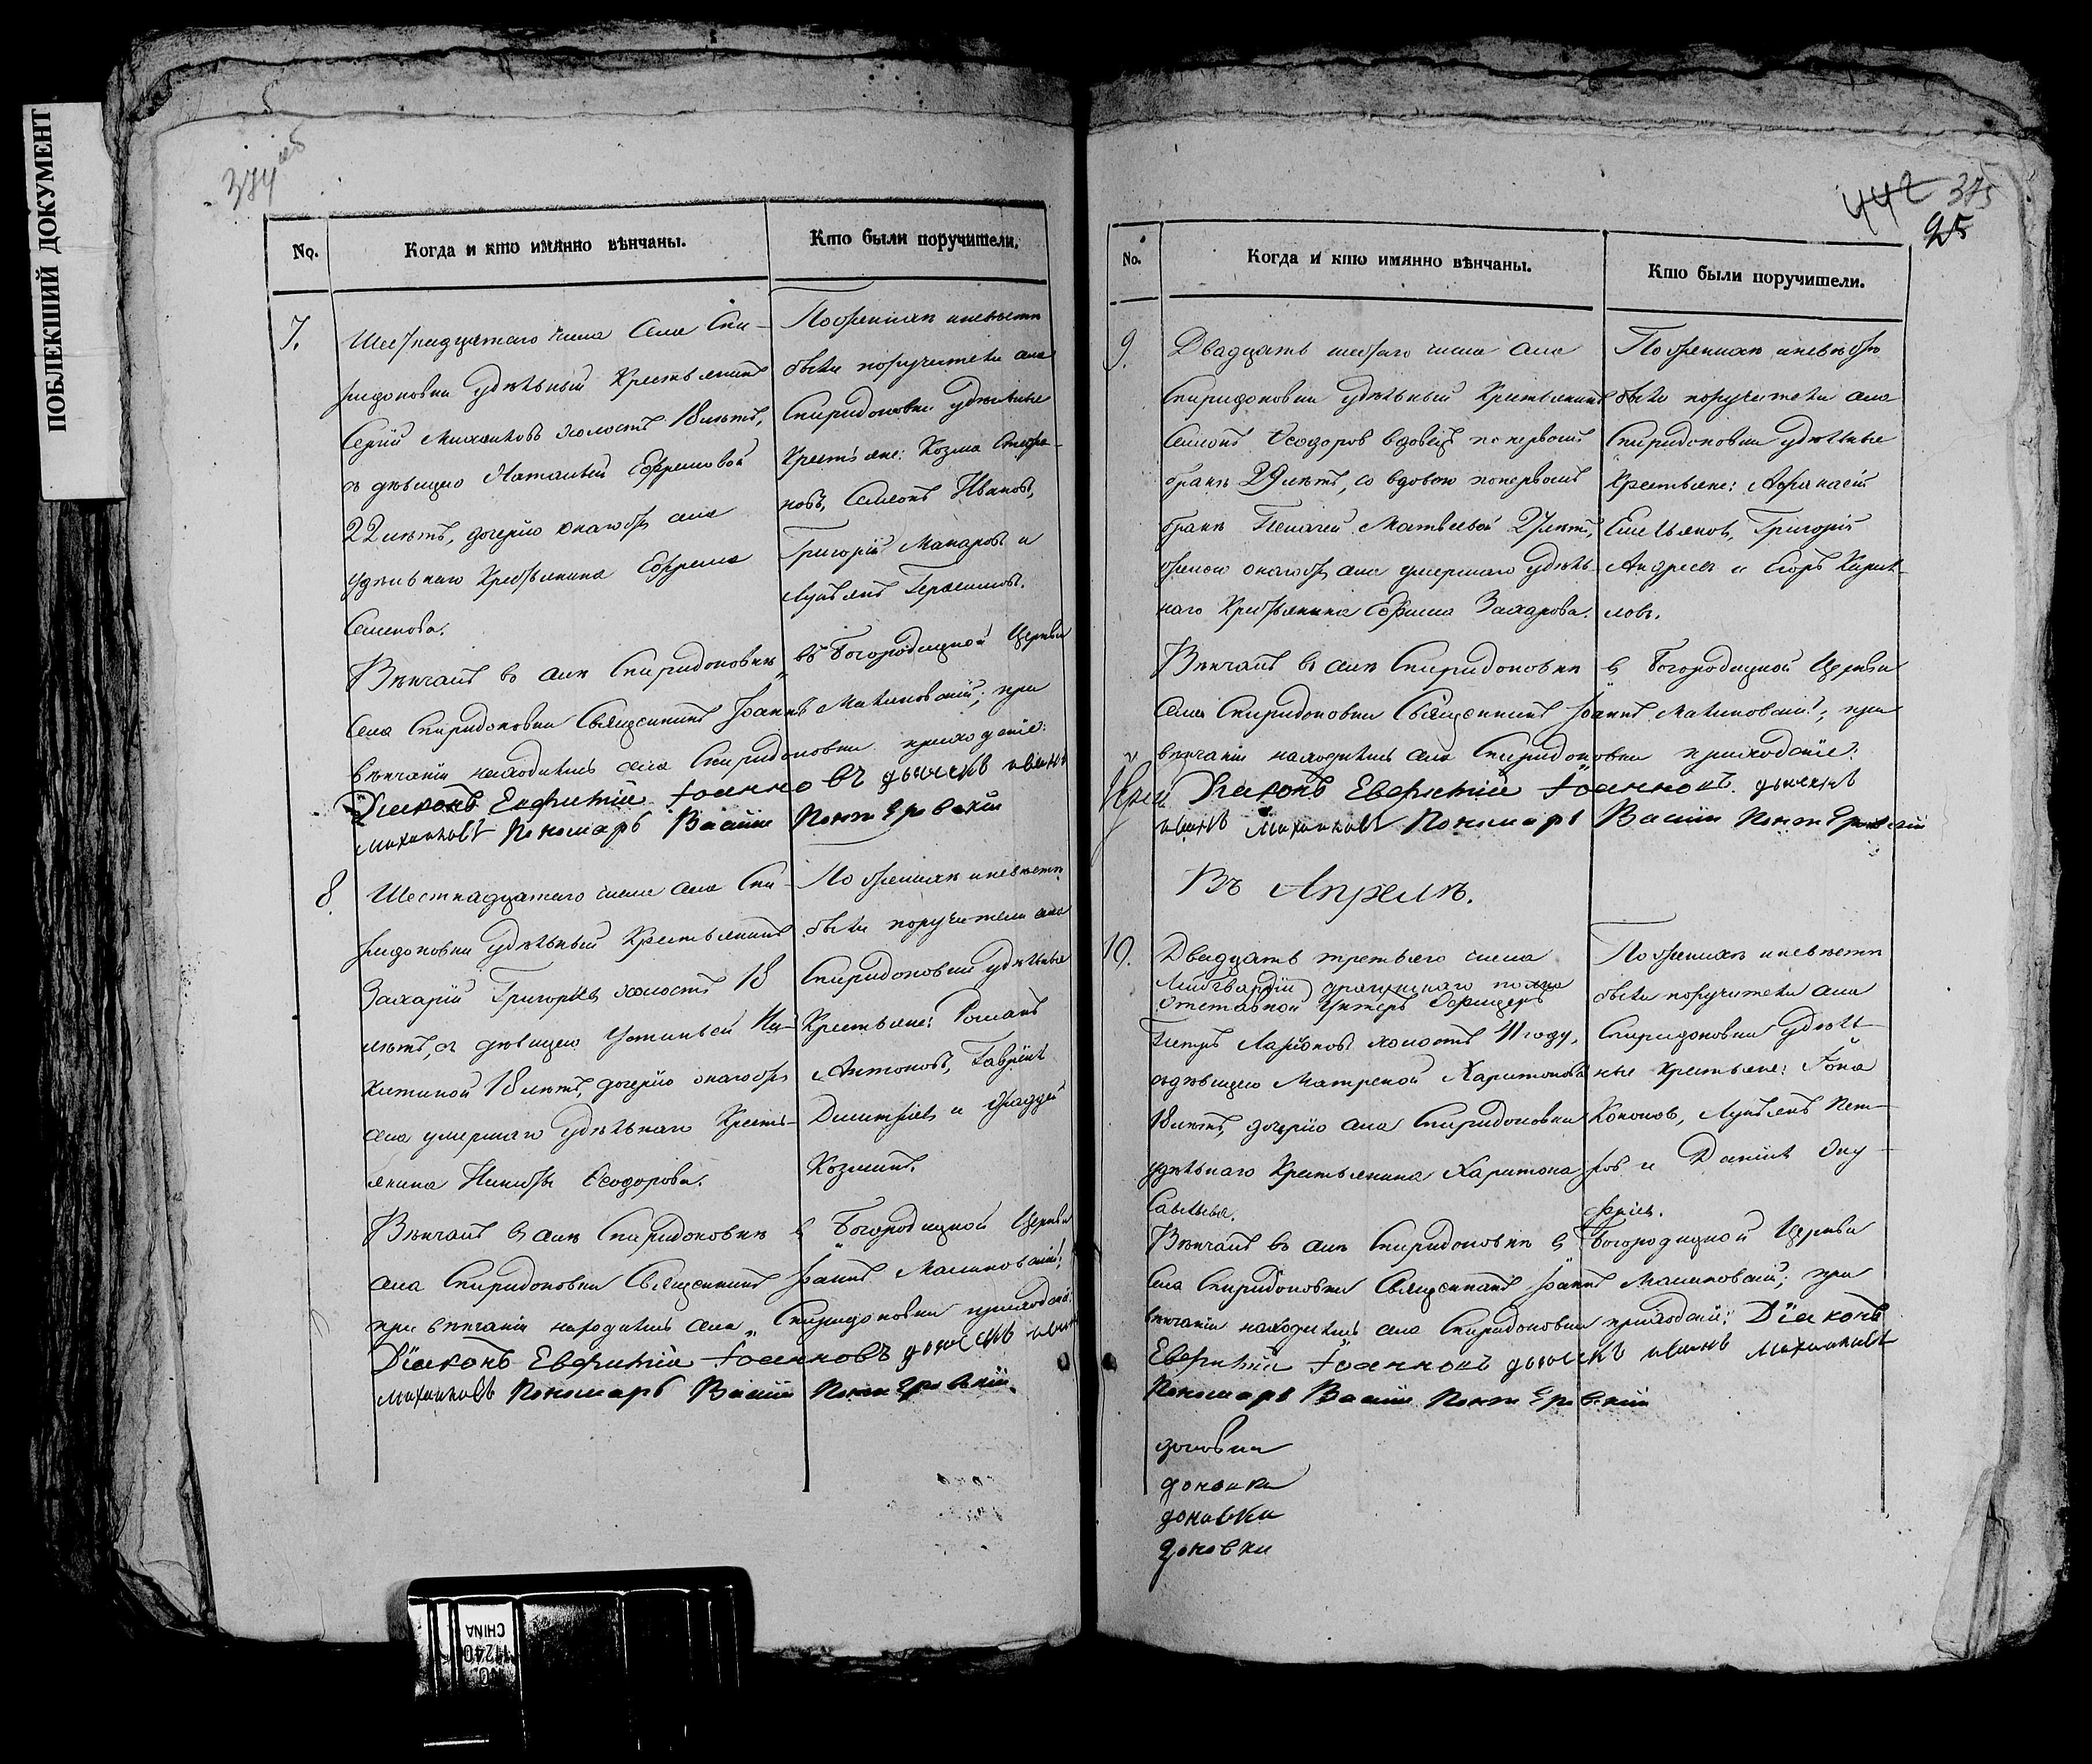 ПОБЛЕКШИЙ ДОКУМЕНТ
374 об
No. Когда и кто имянно вѣнчаны. Кто были поручители.
7.
Шестнадцатаго числа села Спи-
ридоновки удѣльный Крестьянинъ
Сергій Михайловъ холостъ 18 лѣтъ,
съ дѣвицею Натальей Ефремовой
22 лѣтъ, дочерью онагожъ села
удѣльнаго Крестьянина Ефрема
Семенова.
По женихѣ и невѣстѣ
были поручители села
Спиридоновки удѣльные
Крестьяне: Козма Стефа-
новъ, Симонъ Ивановъ,
Григорій Макаровъ и
Лукъянъ Герасимовъ.
Вѣнчалъ въ селѣ Спиридоновкѣ въ Богородицкой Церкви
села Спиридоновки Священникъ Іоаннъ Малиновскій; при
вѣнчаніи находились села Спиридоновки приходскіе:
Діаконъ Евфимій Іоанновъ дьячекъ иванъ
михаиловъ Пономарь Василій Понтеровскій
8.
Шестнадцатаго числа села Спи-
ридоновки удѣльный Крестьянинъ
Захарій Григорьевъ холостъ 18
лѣтъ, съ дѣвицею Устиньей Ни-
китиной 18 лѣтъ, дочерью онагожъ
села умершаго удѣльнаго Кресть-
янина Никиты Ѳеодорова.
По женихѣ и невѣстѣ
были поручители села
Спиридоновки удѣльные
Крестьяне: Романъ
Антоновъ, Гавріилъ
Димитріевъ и Ѳаддей
Козминъ.
Вѣнчалъ въ селѣ Спиридоновкѣ въ Богородицкой Церкви
села Спиридоновки Священникъ Іоаннъ Малиновскій;
при вѣнчаніи находились села Спиридоновки приходскіе:
Діаконъ Евфимій Іоанновъ дьячекъ иванъ
михаиловъ Пономарь Василій Понтеровскій.
442 375
95
No. Когда и кто имянно вѣнчаны. Кто были поручители.
9.
Двадцать шестаго числа села
Спиридоновки удѣльный Крестьянинъ
Симонъ Ѳеодоров вдовецъ по первомъ
бракѣ 29 лѣтъ, со вдовою по первомъ
бракѣ Пелагей Матвѣевой 27 лѣтъ,
женою онагожъ села умершаго удѣль-
наго Крестьянина Ефима Захарова.
По женихѣ и невѣстѣ
были поручители села
Спиридоновки удѣльные
Крестьяне: Афанасій
Емельяновъ, Григорій
Андреевъ и Егоръ Кирил-
ловъ.
Вѣнчалъ въ селѣ Спиридоновкѣ въ Богородицкой Церкви
села Спиридоновки Священникъ Іоаннъ Малиновскій; при
вѣнчаніи находились села Спиридоновки приходскіе:
Діаконъ Евфимій Іоанновъ дьячекъ
иванъ михаиловъ Пономарь Василій Понтеровскій
Въ Апрѣлѣ.
10.
Двадцать третьяго числа
Лейбгвардіи драгунскаго полка
отставной Унтеръ Офицеръ
Петръ Ларіоновъ холостъ 41 году,
съ дѣвицею Матреной Харитоновой
18 лѣтъ, дочерью села Спиридоновки
удѣльнаго Крестьянина Харитона
Савельева.
По женихѣ и невѣстѣ
были поручители села
Спиридоновки удѣль-
ные Крестьяне: Іона
Кононовъ, Лукъянъ Пет-
ровъ и Даніилъ Ону-
фріевъ.
Вѣнчалъ въ селѣ Спиридоновкѣ въ Богородицкой Церкви
села Спиридоновки Священникъ Іоаннъ Малиновскій; при
вѣнчаніи находились села Спиридоновки приходскіе: Діаконъ
Евфимій Іоанновъ дьячекъ иванъ михаиловъ
Пономарь Василій Понтеровскій
доновки
доновки
доновки
доновки
NO. 11240
CHINA